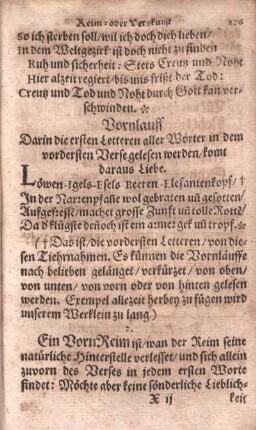 Reim- oder Verskunst 276
So ich sterben soll/ wil ich doch dich lieben/
In dem Weltgezirk ist doch nicht zu finden
Ruh und sicherheit: Stets Creutz und Noht
Hier alzeit regiert/ bis uns frißt der Tod:
Creutz und Tod und Noht durch Gott kan ver-
schwinden.
Vornlauff
Darin die ersten Letteren aller Wörter in dem
vordersten Verse gelesen werden/ komt
daraus Liebe.
Löwen-Igels-Esels Beeren-Elefantenkopf/ †
In der Narrenpfañe wol gebraten uñ gesotten/
Aufgefresse/ machet grosse Zunft uñ tolle Rotte/
Da d klügste deñoch ist ein armer gek uñ tropf.
( † Das ist/ die vordersten Letteren/ von die-
sen Tiehrnahmen. Es künnen die Vornläuffe
nach belieben gelänget/ verkürzet/ von oben/
von unten/ von vorn oder von hinten gelesen
werden. Exempel allezeit herbey zu fügen wird
unserem Werklein zu lang.)
2.
Ein VornReim ist/ wan der Reim seine
natürliche Hinterstelle verlesset/ und sich allein
zuvorn des Verses in jedem ersten Worte
findet: Möchte aber keine sönderliche Lieblich-
X ij keit